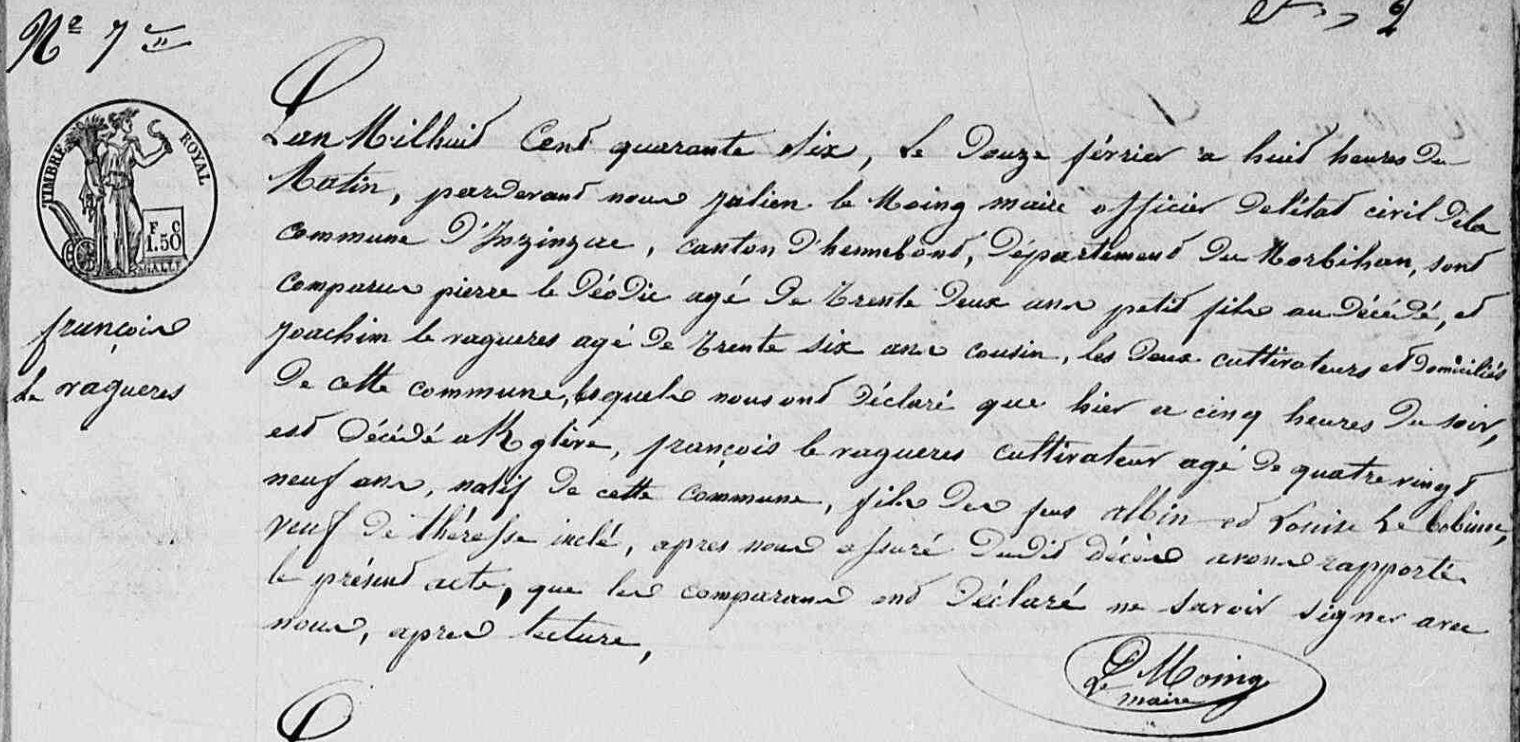 Nº 7
2
TIMBRE ROYAL
F C
1.50
françois
le ragueres
Lan Milhuit Cent quarante Six, Le Douze février a huit heures du
Matin, pardevant nous julien le Moing maire officier Delétat civil Dela
Commune D'Inzinzac, canton D'hennebont, Département Du Morbihan, sont
Comparus pierre le Déodic agé De Trente Deux ans petit fils au Décédé, et
joachim le ragueres agé De Trente Six ans cousin, les Deux cultivateurs et Domiciliés
De cette commune, lesquels nous ont Déclaré que hier a cinq heures Du soir,
est Décédé a Kglire, françois le ragueres Cultivateur agé De quatre vingt
neuf ans, natif De cette Commune, fils Des feus albin et Louise Le bobinec,
veuf De thérèse inclé, apres nous assuré Dudit Décès avons rapporté
le présent acte, que les comparans ont Déclaré ne Savoir Signer avec
nous, apres lecture,
Le Moing
maire